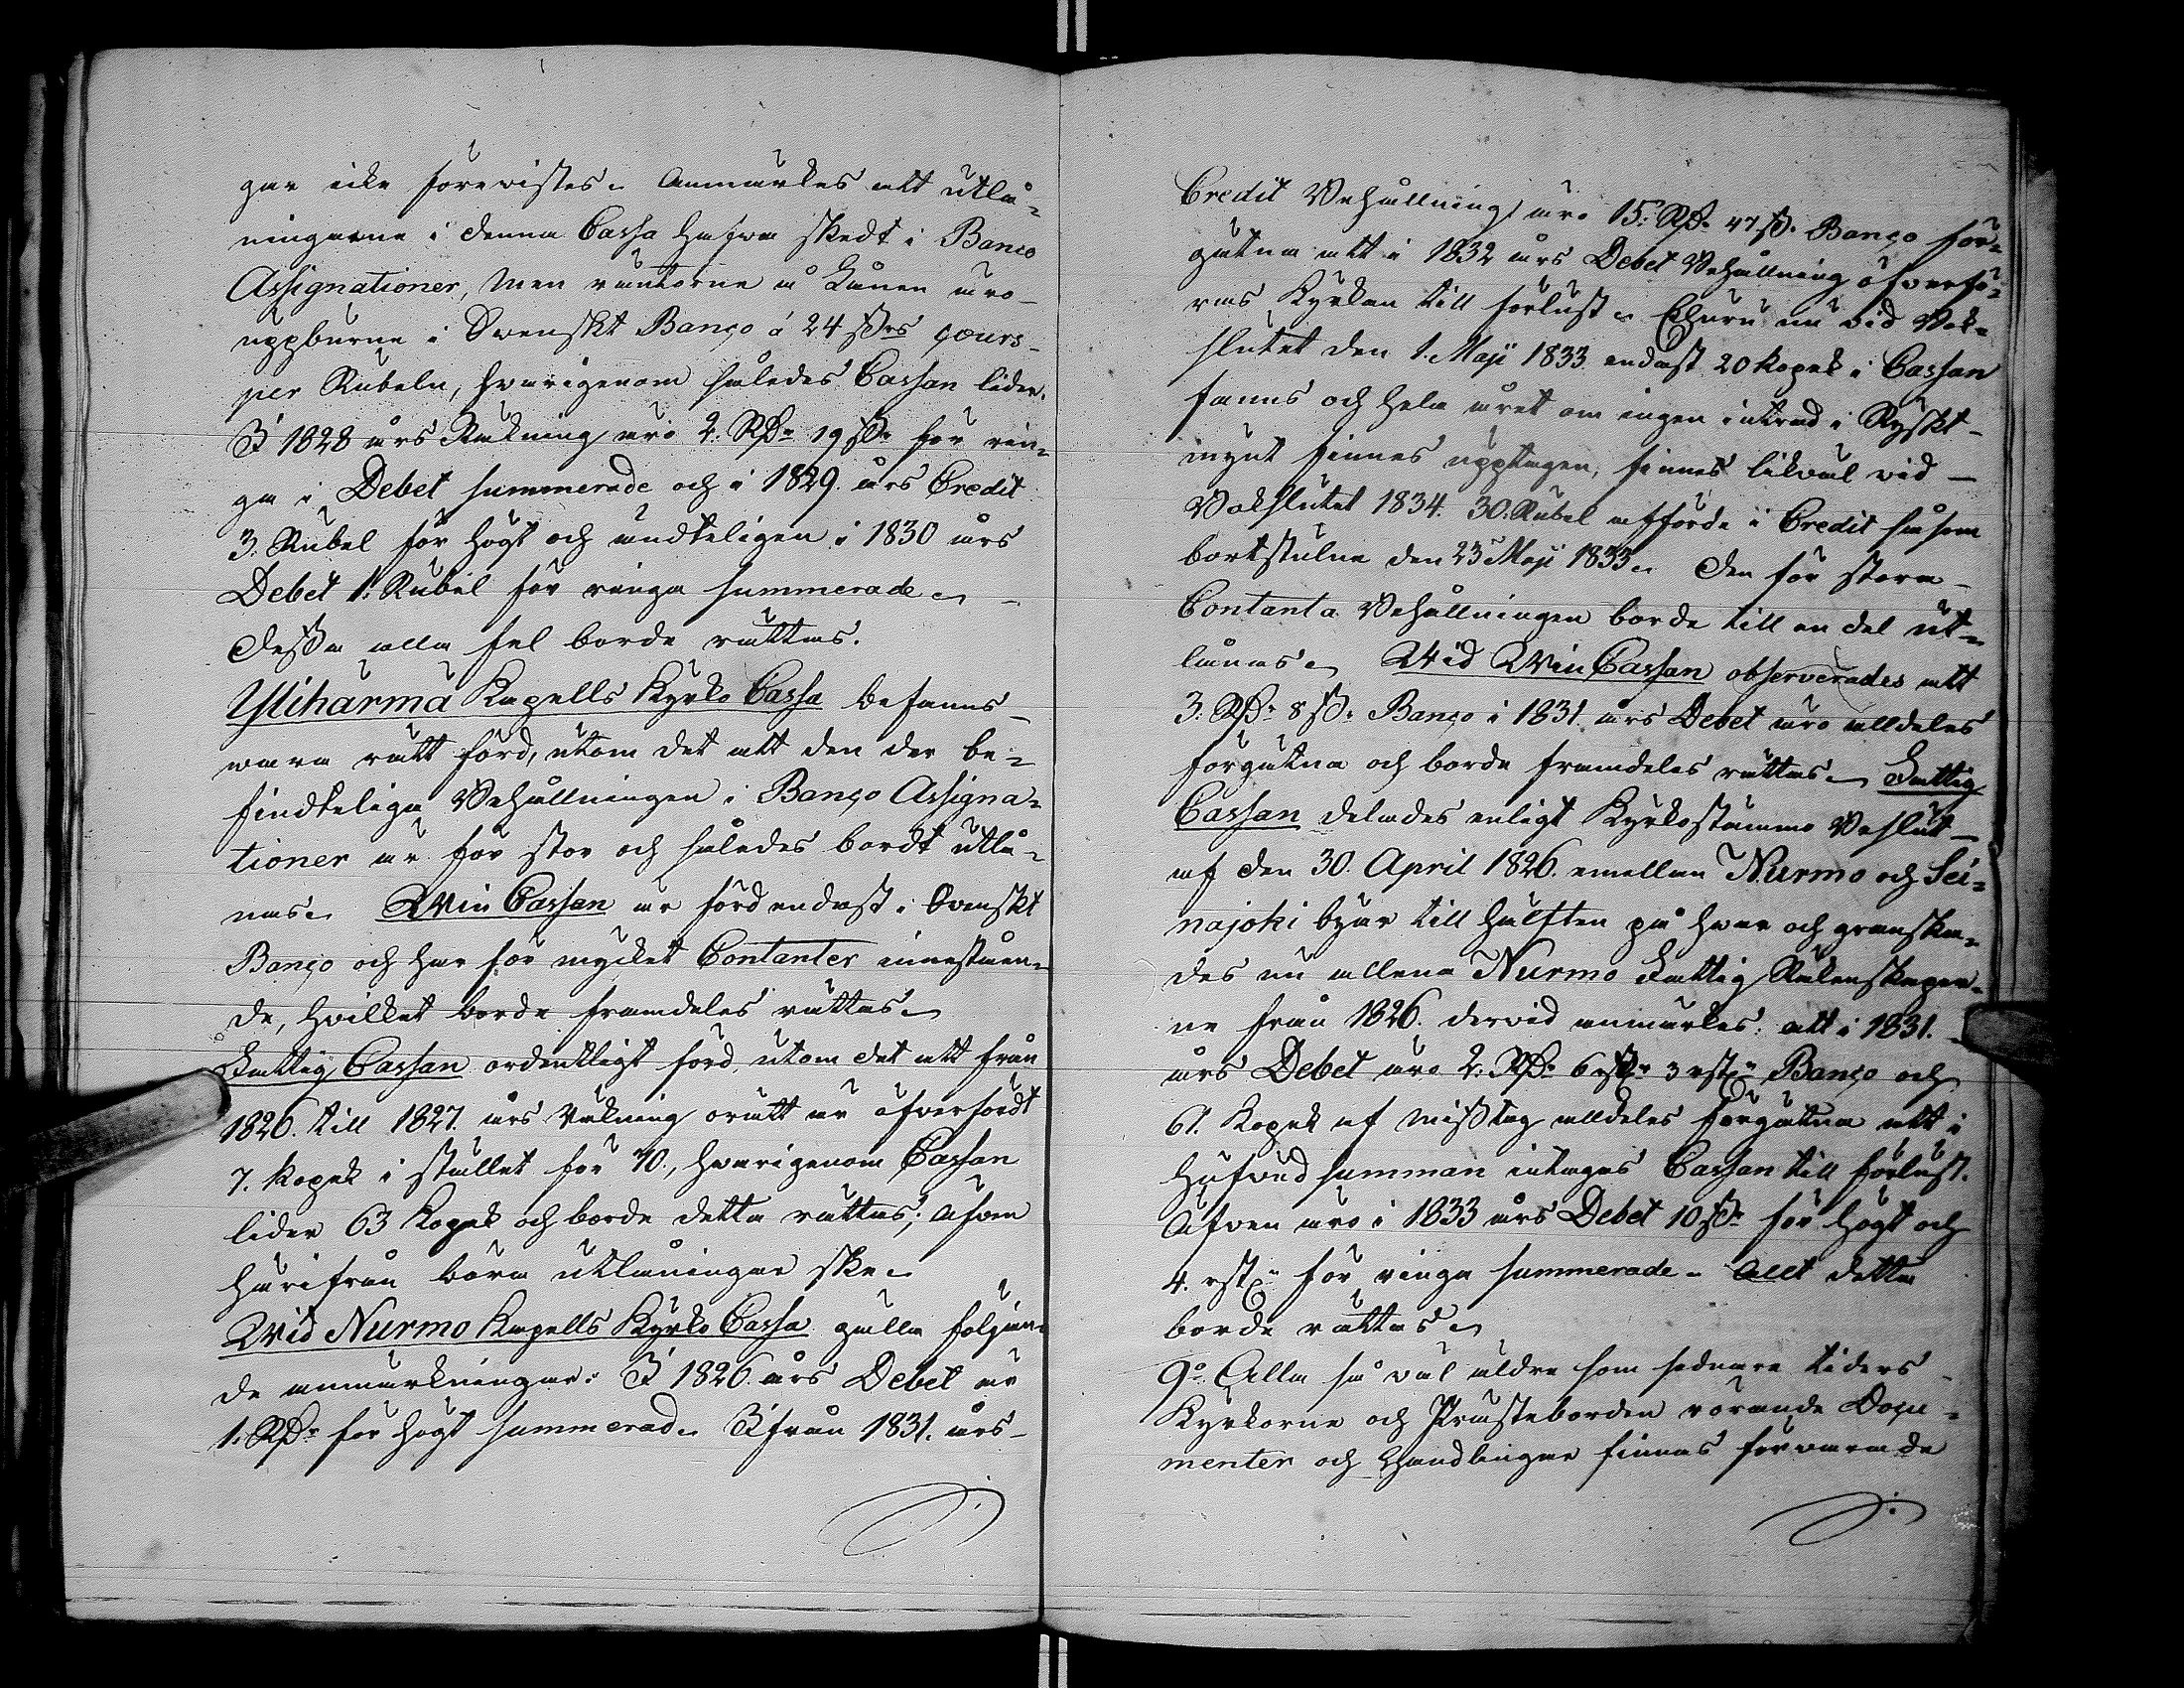 gar icke förevistes. Anmärkes att utlå=
ningarne i denna Cassa hafva skedt i Banco
Assignationer, men räntorne å Lånen äro
uppburne i Svenskt Banco à 24 sk:rs cours
per Rubeln, hvarigenom således Cassan lider.
I 1828 års Räkning äro 2. Rd:r 19 sk: för rin=
ga i Debet summerade och i 1829. års Credit
3. Rubel för högt och ändteligen i 1830 års
Debet 1. Rubel för ringa summerade.
Dessa alla fel borde rättas.
Yliharmä Kapells Kyrko Cassa befanns
vara rätt förd, utom det att den der be=
findteliga Behållningen i Banco Assigna=
tioner är för stor och således bordt utlå=
nas. Win Cassan är förd endast i Svenskt
Banco och har för mycket Contanter innestå en=
de, hvilket borde framdeles rättas.
Fattig Cassan ordentligt förd, utom det att från
1826. till 1827. års Räkning orätt är öfverfördt
7. Kopek i stället för 70., hvarigenom Cassan
lider 63 Kopek och borde detta rättas; äfven
härifrån böra utlåningar ske.
Wid Nurmo Kapells Kyrko Cassa gälla följan=
de anmärkningar: I 1826. års Debet är
1. Rd:r för högt summerad. Ifrån 1831. års
Credit Behållning äro 15. Rd: 47 sk: Banco för=
gätna att i 1832 års Debet Behållning öfverfö=
ras Kyrkan till förlust. Ehuru nu vid Bok=
slutet den 1. Maji 1833 endast 20 Kopek i Cassan
fanns och hela året om ingen intrad i Ryskt
mynt finnes upptagen, finnes likväl vid
Bokslutet 1834. 30. Rubel afförde i Credit såsom
bortstulne den 23 Maji 1833. Den för stora
Contanta Behållningen borde till en del ut=
lånas. Wid Win Cassan observerades att
3. Rd:r 8 sk: Banco i 1831. års Debet äro alldeles
förgätna och borde framdeles rättas. Fattig
Cassan delades enligt Kyrkostämmo Beslut
af den 30. April 1826. emellan Nurmo och Sei=
najoki byar till hälften på hvar och granska=
des nu allena Nurmo Fattig Räkenskaper=
ne från 1826. dervid anmärkes: att i 1831.
års Debet äro 2. Rd:r 6 sk: 3 rst: Banco och
61. Kopek af misstag alldeles förgätna att i
hufvud summan intagas Cassan till förlust.
Äfven äro i 1833 års Debet 10 sk: för högt och
4. rst: för ringa summerade. Allt detta
borde rättas.
9:o Alla så väl äldre som sednare tiders
Kyrkorne och Prästeborden rörande Docu=
menter och Handlingar finnas förvarade